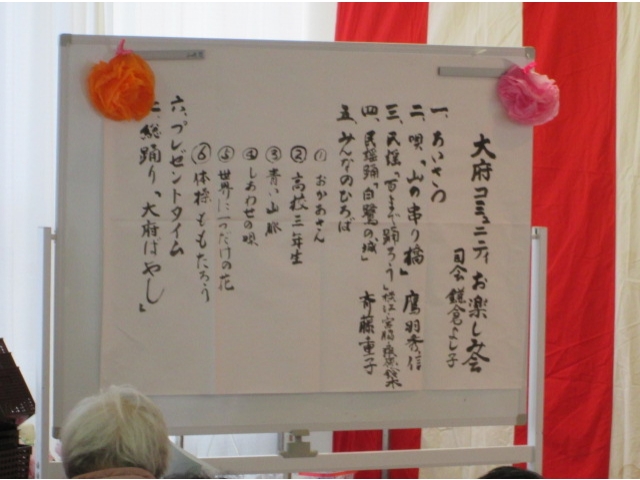 大府コミュニティお楽しみ会
司会 鎌倉よし子
一、あいさつ
二、唄「山の吊り橋」 鷹羽秀信
三、民謡「百まで踊ろう」
四、民謡踊「白鷺の城」 斉藤重子
五、みんなのひろば
① おかあさん
② 高校三年生
③ 青い山脈
④ しあわせの唄
⑤ 世界に一つだけの花
⑥ 体操 ももたろう
六、プレゼントタイム
総踊り「大府ばやし」